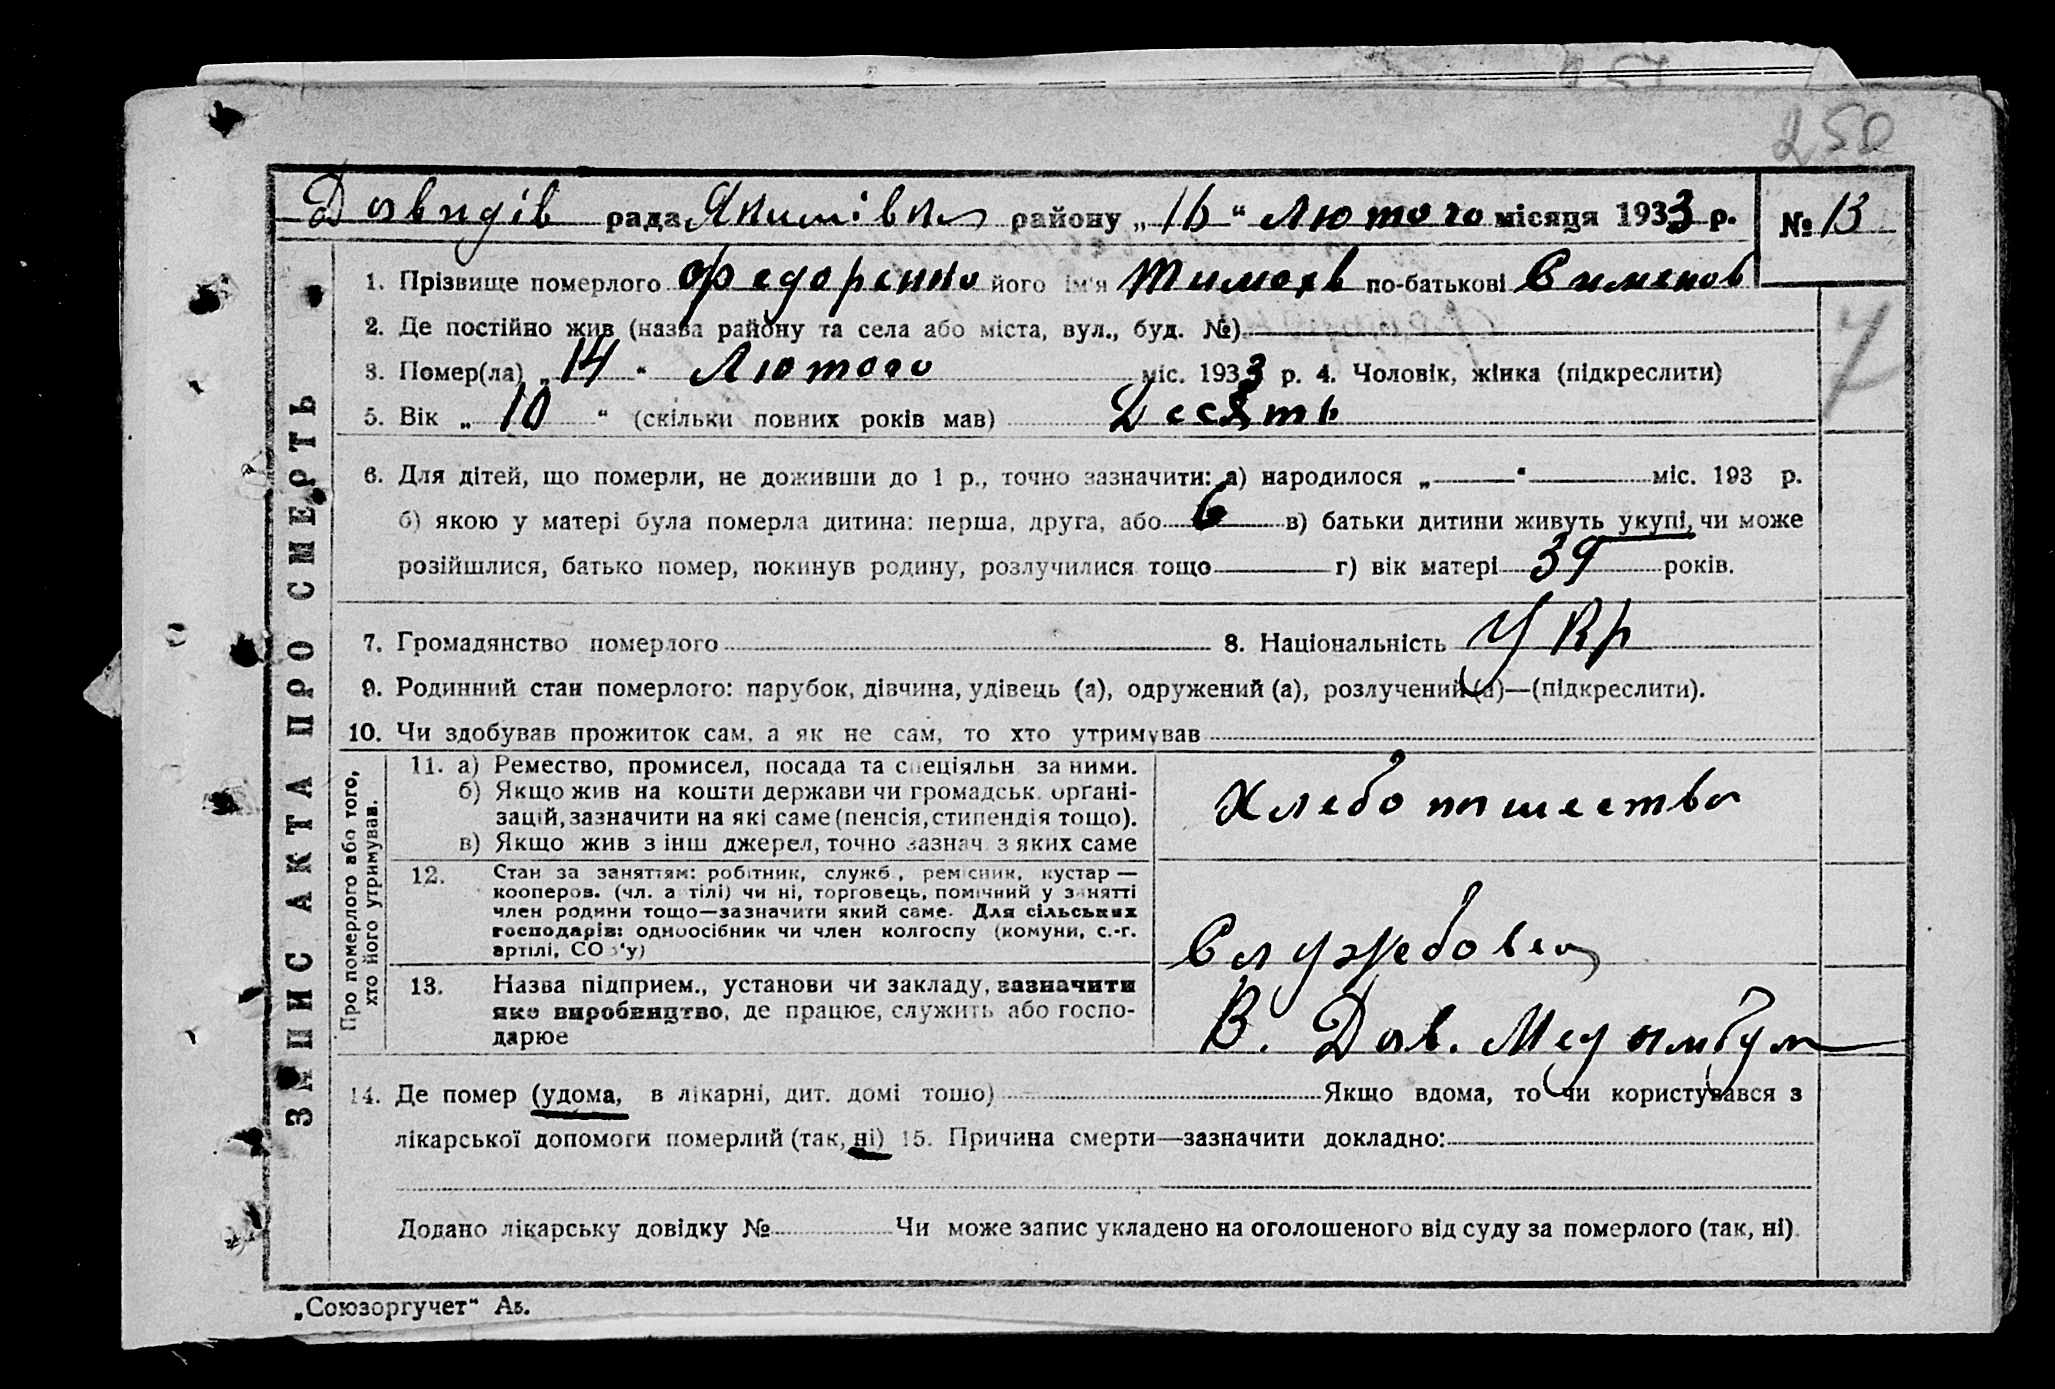 250
Давидів рада Якимівка району „16“ Лютого місяця 1933 р. № 13
ЗАПИС АКТА ПРО СМЕРТЬ
1. Прізвище померлого Федоренко його ім'я Тимофів по-батькові Сименов
2. Де постійно жив (назва району та села або міста, вул., буд. №)
3. Помер(ла) „14“ Лютого міс. 1933 р. 4. Чоловік, жінка (підкреслити)
5. Вік „10“ (скільки повних років мав) Десять
6. Для дітей, що померли, не доживши до 1 р., точно зазначити: а) народилося „—“— міс. 193 р.
б) якою у матері була померла дитина: перша, друга, або 6 в) батьки дитини живуть укупі, чи може
розійшлися, батько помер, покинув родину, розлучилися тощо — г) вік матері 39 років.
7. Громадянство померлого 8. Національність Укр
9. Родинний стан померлого: парубок, дівчина, удівець (а), одружений (а), розлучений (а)—(підкреслити).
10. Чи здобував прожиток сам, а як не сам, то хто утримував
Про померлого або того,
хто його утримував.
11. а) Ремество, промисел, посада та спеціяльн за ними.
б) Якщо жив на кошти держави чи громадськ. орґані-
зацій, зазначити на які саме (пенсія, стипендія тощо).
в) Якщо жив з інш джерел, точно зазнач з яких саме
Хлебопашество
12. Стан за заняттям: робітник, служб., ремісник, кустар —
кооперов. (чл. артілі) чи ні, торговець, помічний у занятті
член родини тощо—зазначити який саме. Для сільських
господарів: одноосібник чи член колгоспу (комуни, с.-г.
артілі, СОЗ'у)
Службовец
13. Назва підприєм., установи чи закладу, зазначити
яке виробництво, де працює, служить або госпо-
дарює
В. Дав.
14. Де помер (удома, в лікарні, дит. домі тощо) Якщо вдома, то чи користувався з
лікарської допомоги померлий (так, ні) 15. Причина смерти—зазначити докладно:
Додано лікарську довідку № Чи може запис укладено на оголошеного від суду за померлого (так, ні).
„Союзоргучет“ А5.